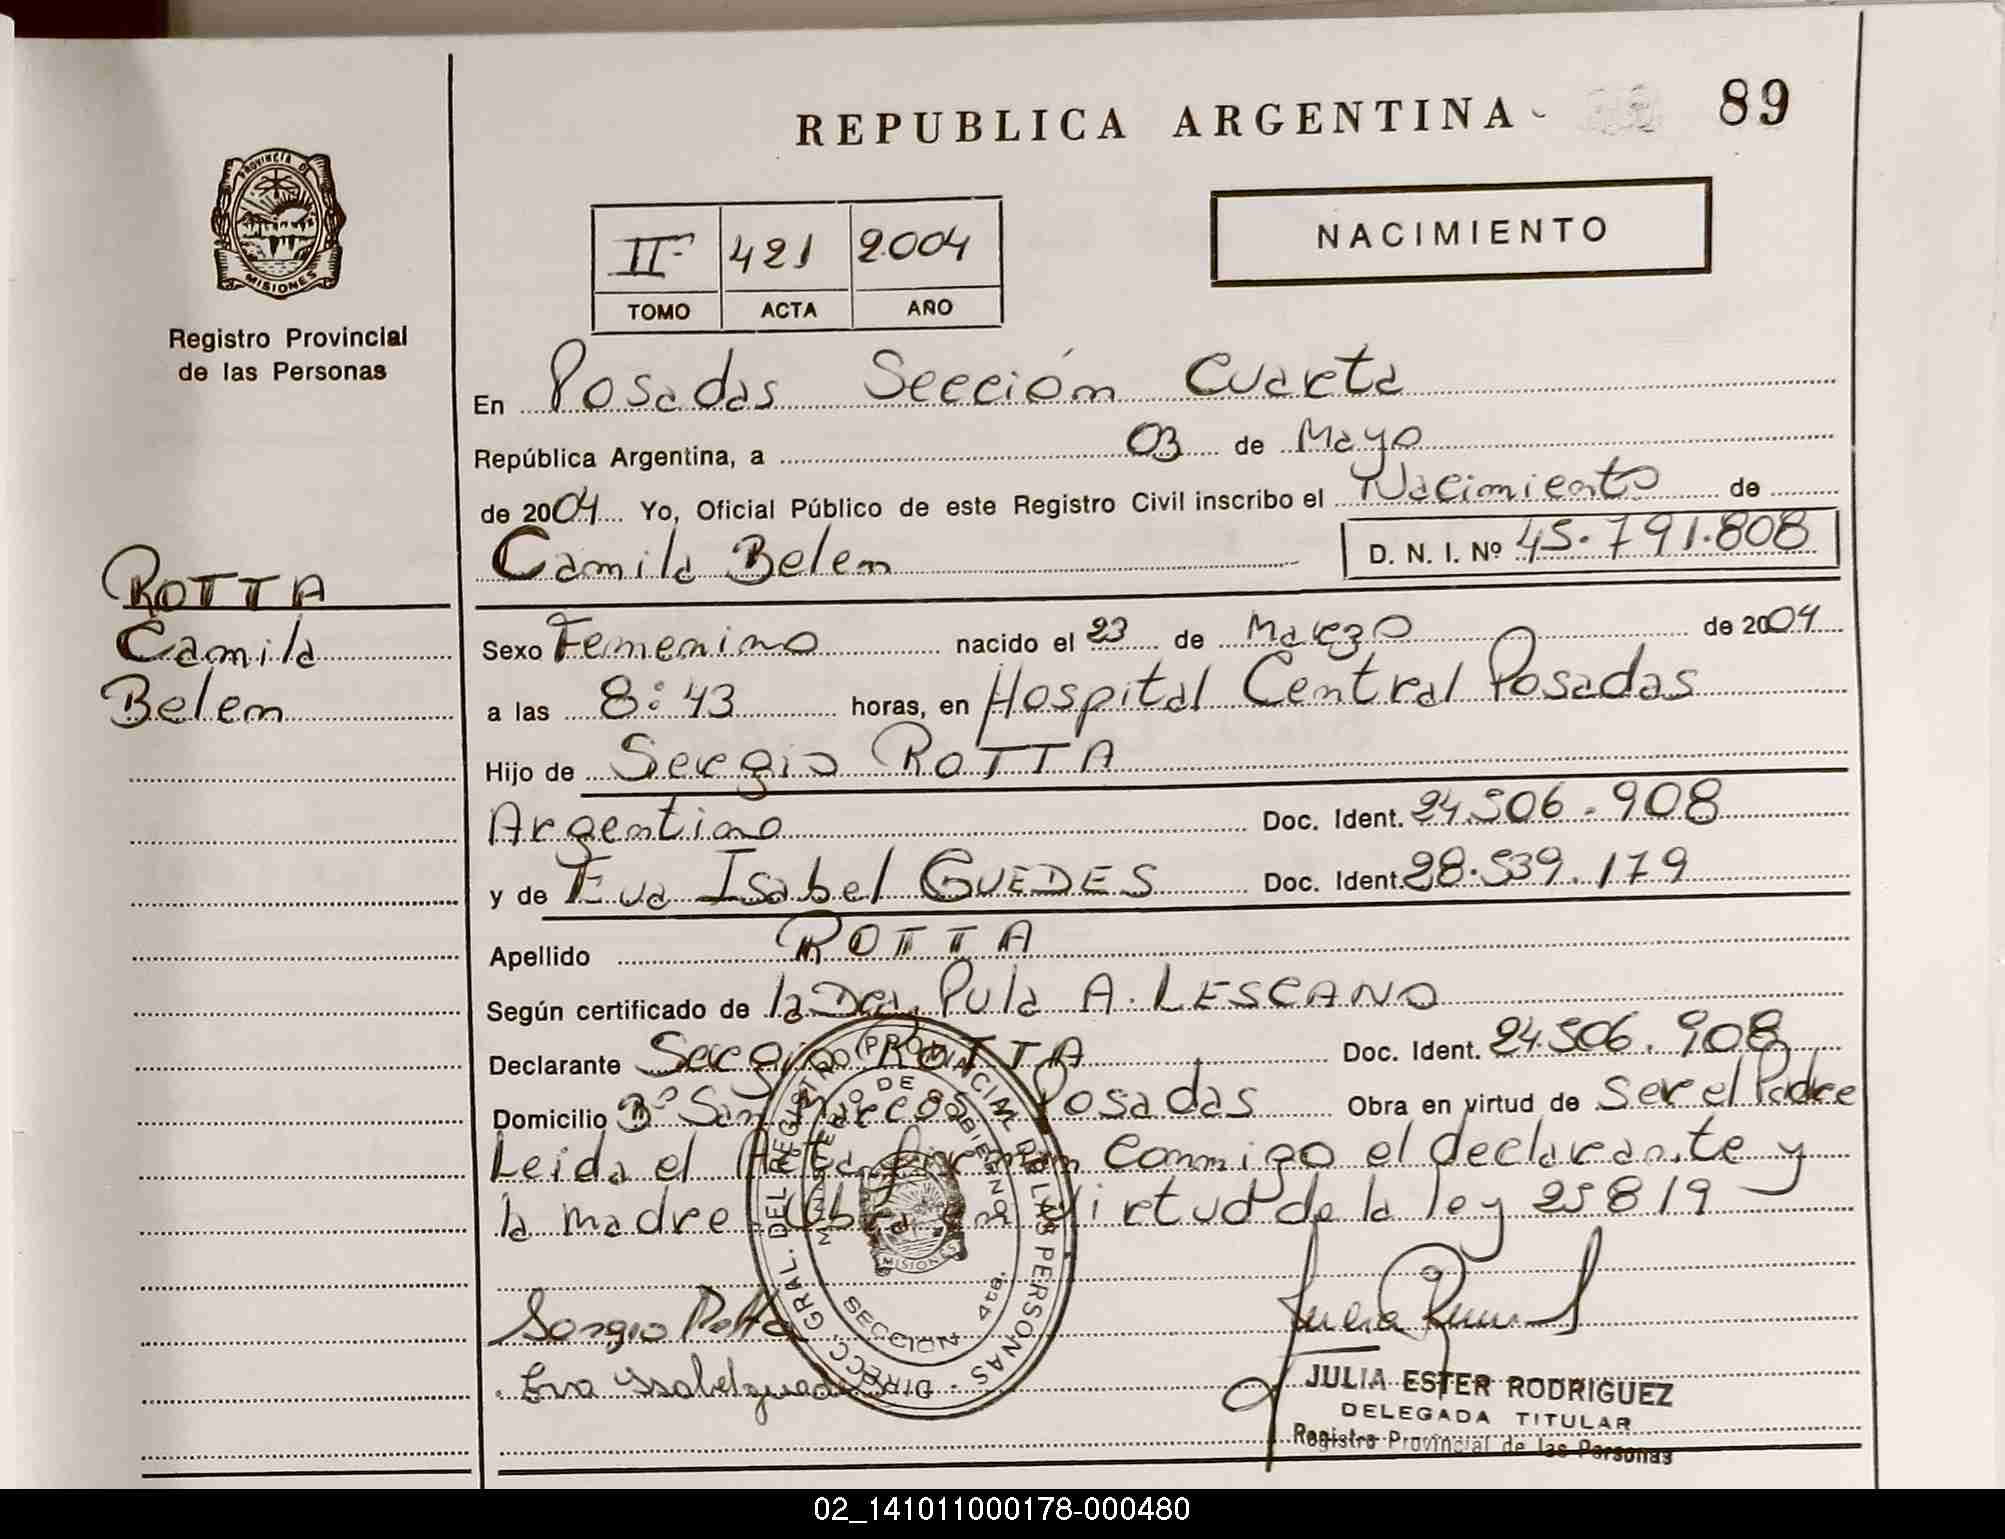 REPUBLICA ARGENTINA
89
PROVINCIA DE
MISIONES
Registro Provincial
de las Personas
II 421 2.004
TOMO ACTA AÑO
NACIMIENTO
En Posadas Sección Cuarta
República Argentina, a 03 de Mayo
de 2004 Yo, Oficial Público de este Registro Civil inscribo el Nacimiento de
Camila Belem
D. N. I. Nº 45.791.808
ROTTA
Camila
Belem
Sexo Femenino nacido el 23 de Marzo de 2004
a las 8:43 horas, en Hospital Central Posadas
Hijo de Sergio ROTTA
Argentino Doc. Ident. 24.506.908
y de Eva Isabel GUEDES Doc. Ident. 28.539.179
Apellido ROTTA
Según certificado de la Dra. Pula A. LESCANO
Declarante Sergio ROTTA Doc. Ident. 24.506.908
Domicilio Bº San Marcos Posadas Obra en virtud de Ser el Padre
Leida el Acta firman conmigo el declarante y
la madre Obra en virtud de la ley 25819
DIRECC. GRAL. DEL REGISTRO PROVINCIAL DE LAS PERSONAS
MINISTERIO DE GOBIERNO
MISIONES
SECCION 4ta.
Sergio Rotta
Eva Isabel guedes
JULIA ESTER RODRIGUEZ
DELEGADA TITULAR
Registro Provincial de las Personas
02_141011000178-000480